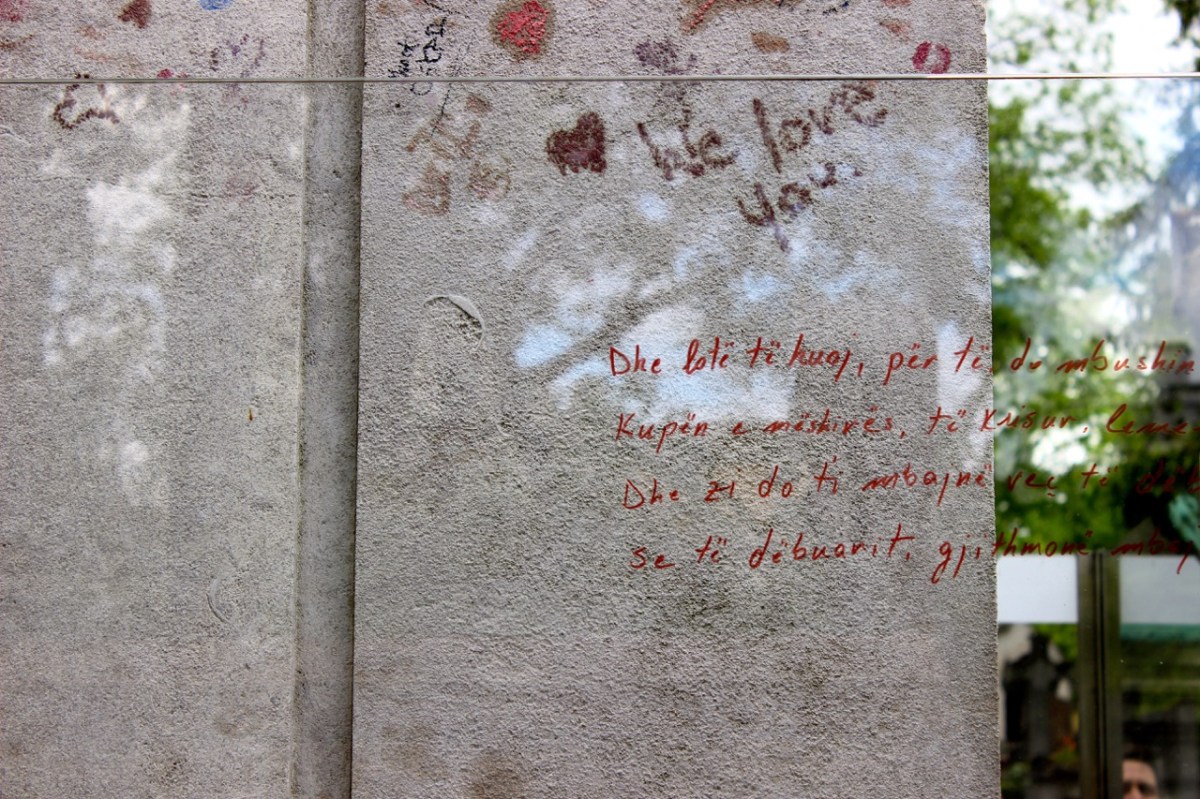 We love
you.
Dhe lotë të huaj, për të, do mbushin
Kupën e mëshirës, të krisur,
Dhe zi do ti mbajnë veç të
se të dëbuarit, gjithmonë